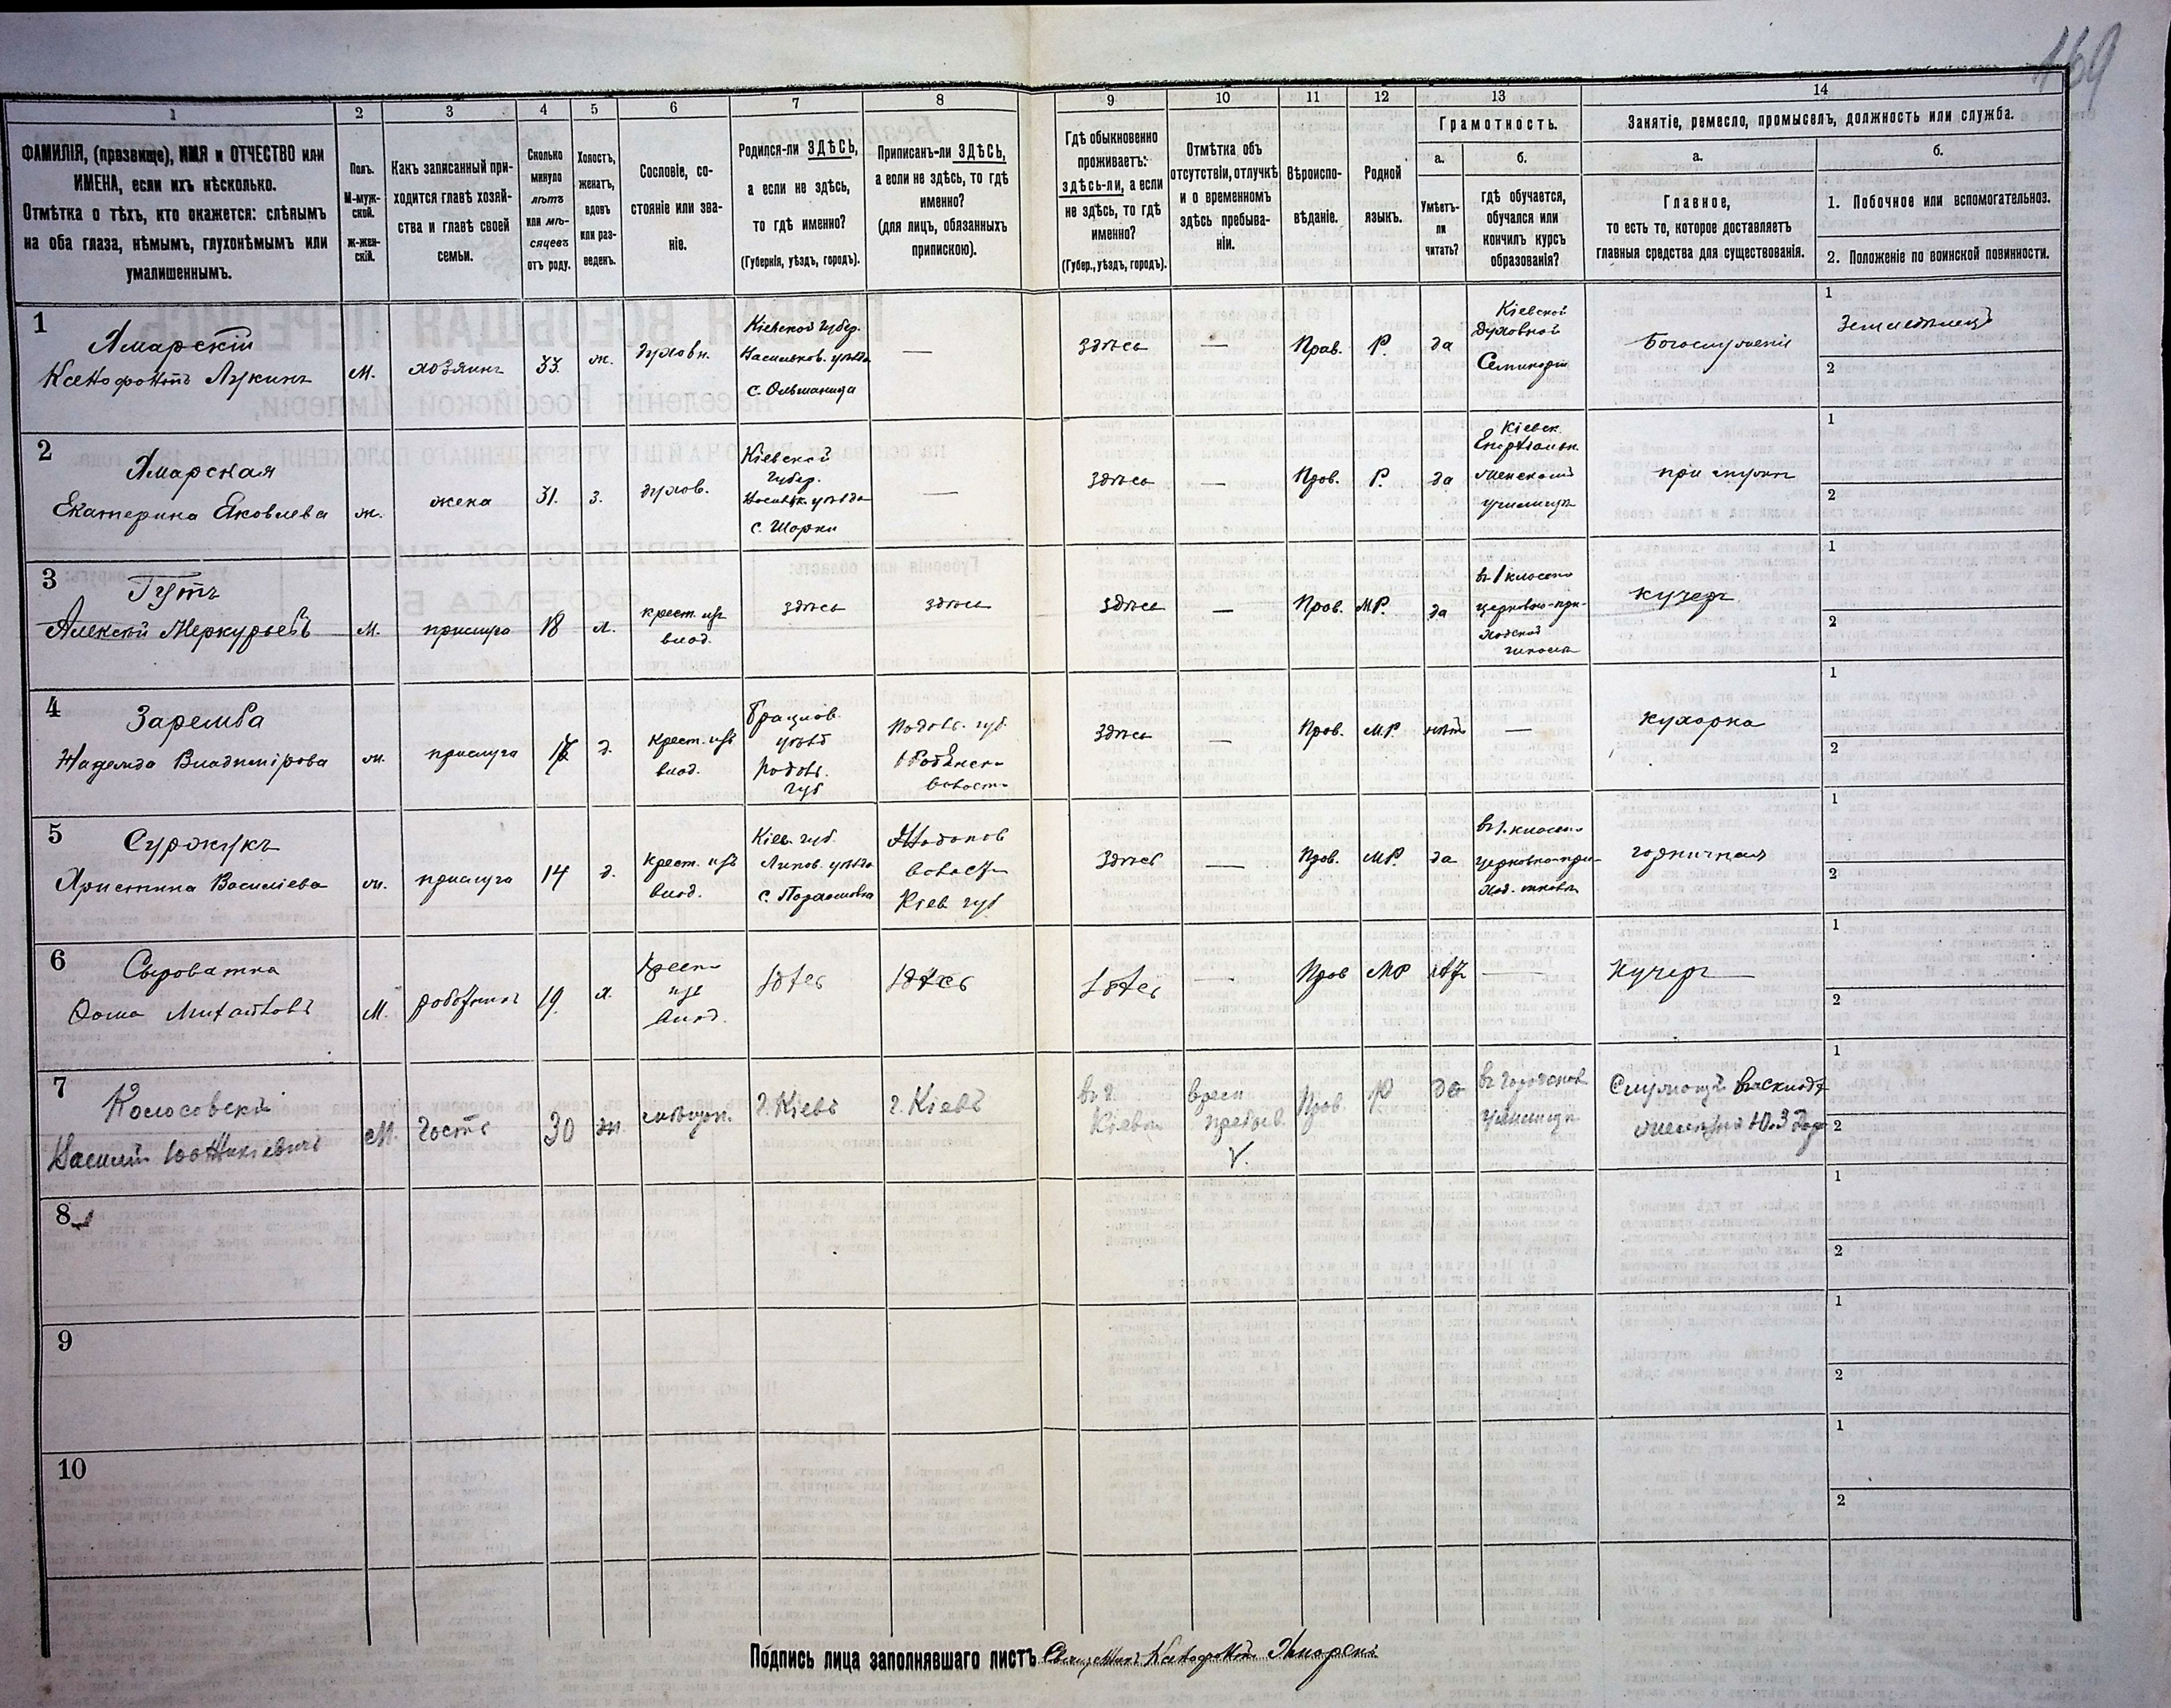 469
1 2 3 4 5 6 7 8 9 10 11 12 13 14
ФАМИЛІЯ, (прозвище), ИМЯ и ОТЧЕСТВО или
ИМЕНА, если ихъ нѣсколько.
Отмѣтка о тѣхъ, кто окажется: слѣпымъ
на оба глаза, нѣмымъ, глухонѣмымъ или
умалишеннымъ.
Полъ.
М-муж-
ской.
ж-жен-
скій.
Какъ записанный при-
ходится главѣ хозяй-
ства и главѣ своей
семьи.
Сколько
минуло
лѣтъ
или мѣ-
сяцевъ
отъ роду.
Холостъ,
женатъ,
вдовъ
или раз-
веденъ.
Сословіе, со-
стояніе или зва-
ніе.
Родился-ли ЗДѢСЬ,
а если не здѣсь,
то гдѣ именно?
(Губернія, уѣздъ, городъ).
Приписанъ-ли ЗДѢСЬ,
а если не здѣсь, то гдѣ
именно?
(для лицъ, обязанныхъ
припискою).
Гдѣ обыкновенно
проживаетъ:
здѣсь-ли, а если
не здѣсь, то гдѣ
именно?
(Губер., уѣздъ, городъ).
Отмѣтка объ
отсутствіи, отлучкѣ
и о временномъ
здѣсь пребыва-
ніи.
Вѣроиспо-
вѣданіе.
Родной
языкъ.
Грамотность.
а.
Умѣетъ-
ли
читать?
б.
гдѣ обучается,
обучался или
кончилъ курсъ
образованія?
Занятіе, ремесло, промыселъ, должность или служба.
а.
Главное,
то есть то, которое доставляетъ
главныя средства для существованія.
б.
1. Побочное или вспомогательноэ.
2. Положеніе по воинской повинности.
1
Ямарскій
Ксенофонтъ Лукинъ
м.
хозяинъ
33.
ж.
духовн.
Кіевской губер.
Васильков. уѣзда
с. Ольшаница
—
здѣсь
—
Прав.
Р.
да
Кіевской
Духовной
Семинаріи
Богослуженіе
1
Земледѣлецъ
2
2
Ямарская
Екатерина Яковлева
ж.
жена
31.
з.
духов.
Кіевской
губер.
Васильк. уѣзда
—
здѣсь
—
Пров.
Р.
да
Кіевск.
Епархіальн.
женскомъ
училищѣ
при мужѣ
1
2
3
Гутъ
Алексѣй Меркурьевъ
м.
прислуга
18
х.
крест. изъ
влад.
здѣсь
здѣсь
здѣсь
—
Пров.
МР.
да
въ 1 классн.
церковно-при-
ходской
школѣ
кучеръ
1
2
4
Заремба
Надежда Владимірова
ж.
прислуга
д.
крест. изъ
влад.
Брацлов.
уѣзд
Подол.
губ
Подол. губ
волост.
здѣсь
—
Пров.
МР
нѣтъ
—
кухарка
1
2
5
Суржукъ
Христина Василіева
ж.
прислуга
14
д.
крест. изъ
влад.
Кіев. губ.
Липов. уѣзда
волости
Кіев. губ
здѣсь
—
Пров.
МР.
да
въ 1. классн.
церковно-при-
ход. школѣ
горничная
1
2
6
Сыроватка
Ѳома Михайловъ
М.
работникъ
19.
х.
Крест.
изъ
влад.
здѣсь
здѣсь
здѣсь
—
Пров
МР
нѣт
—
Кучеръ
1
2
7
Колосовскій
м.
гость
30
ж.
мѣщан.
г. Кіевъ
г. Кіевъ
въ г.
Кіевѣ
врем
пребыв.
Пров.
Р
да
въ городском
училищѣ
Служащъ въ складѣ
Ю.З дор
1
2
8
1
2
9
1
2
10
1
2
Подпись лица заполнявшаго листъ Священникъ Ксенофонтъ Ямарскій